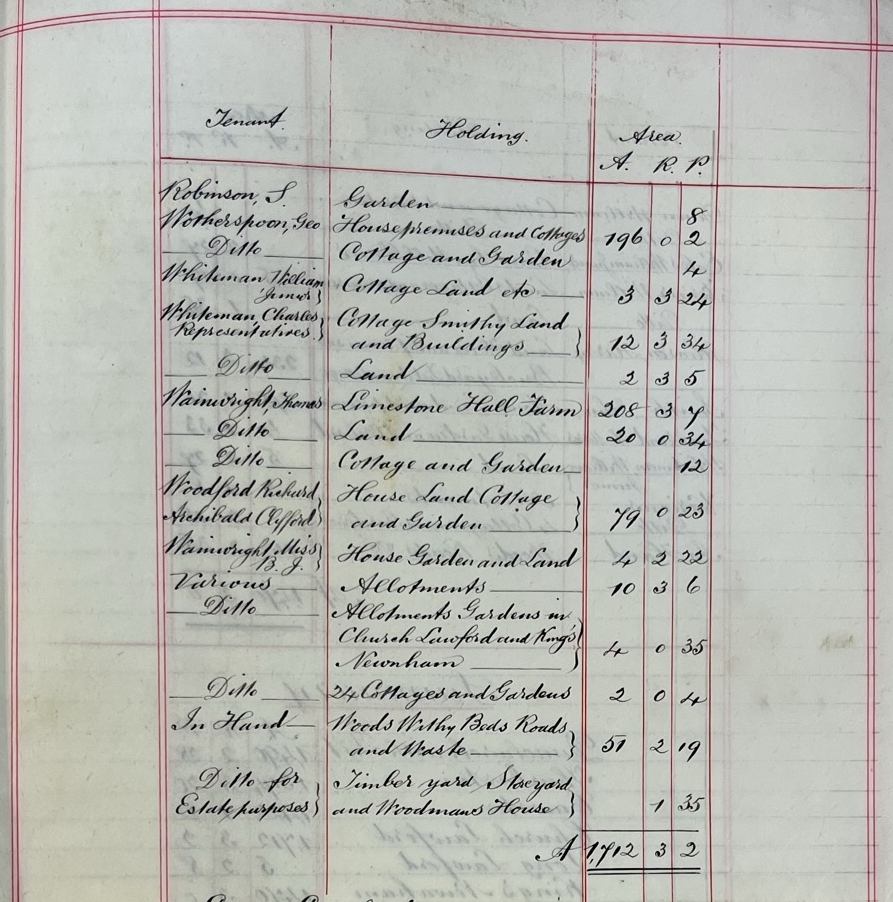 Tenant. Holding. Area.
A. R. P.
Robinson, S. Garden 8
Wotherspoon, Geo House premises and Cottages 196 0 2
Ditto Cottage and Garden 4
Whiteman William
Junior } Cottage Land etc 3 3 24
Whiteman, Charles Cottage Smithy Land
Representatives } and Buildings } 12 3 34
Ditto Land 2 3 5
Wainwright, Thomas Limestone Hall Farm 208 3 7
Ditto Land 20 0 34
Ditto Cottage and Garden 12
Woodford Richard House Land Cottage
Archibald Clifford } and Garden } 79 0 23
Wainwright, Miss
B. J. } House Garden and Land 4 2 22
Various Allotments 10 3 6
Ditto Allotments Gardens in
Church Lawford and King's
Newnham } 4 0 35
Ditto 24 Cottages and Gardens 2 0 4
In Hand Woods Withy Beds Roads
and Waste } 51 2 19
Ditto for Timber yard Storeyard
Estate purposes } and Woodmans House } 1 35
A 1,712 3 2